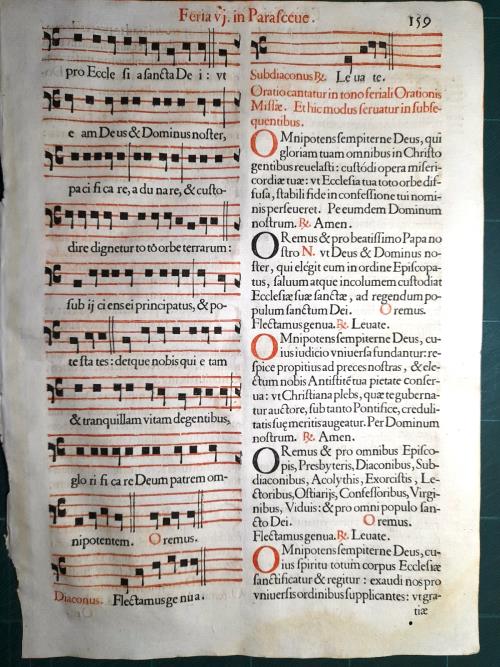 Feria vj. in Parasceue.
159
pro Eccle si a sancta De i: vt
e am Deus & Dominus noster,
pa ci fi ca re, a du na re, & custo-
dire dignetur to tō orbe terrarum:
sub ij ci ens ei principatus, & po-
te sta tes: detque nobis qui e tam
& tranquillam vitam degentibus,
glo ri fi ca re Deum patrem om-
nipotentem. Oremus.
Diaconus. Flectamus ge nu a.
Subdiaconus ℟. Le ua te.
Oratio cantatur in tono feriali Orationis
Missæ. Et hic modus seruatur in subse-
quentibus.
OMnipotens sempiterne Deus, qui
gloriam tuam omnibus in Christo
gentibus reuelasti: custódi opera miseri-
cordiæ tuæ: vt Ecclesia tua toto orbe dif-
fusa, stabili fide in confessione tui nomi-
nis perseueret. Per eumdem Dominum
nostrum. ℟. Amen.
ORemus & pro beatissimo Papa no
stro N. vt Deus & Dominus no-
ster, qui elégit eum in ordine Episcopa-
tus, saluum atque incolumem custodiat
Ecclesiæ suæ sanctæ, ad regendum po-
pulum sanctum Dei. Oremus.
Flectamus genua. ℟. Leuate.
OMnipotens sempiterne Deus, cu-
ius iudicio vniuersa fundantur: re-
spice propitius ad preces nostras, & ele-
ctum nobis Antistitē tua pietate conser-
ua: vt Christiana plebs, quæ te guberna-
tur auctore, sub tanto Pontifice, creduli-
tatis suę meritis augeatur. Per Dominum
nostrum. ℟. Amen.
ORemus & pro omnibus Episco-
pis, Presbyteris, Diaconibus, Sub-
diaconibus, Acolythis, Exorcistis, Le-
ctoribus, Ostiarijs, Confessoribus, Virgi-
nibus, Viduis: & pro omni populo san-
cto Dei. Oremus.
Flectamus genua. ℟. Leuate.
OMnipotens sempiterne Deus, cu-
ius spiritu totum corpus Ecclesiæ
sanctificatur & regitur: exaudi nos pro
vniuersis ordinibus supplicantes: vt gra-
tiæ